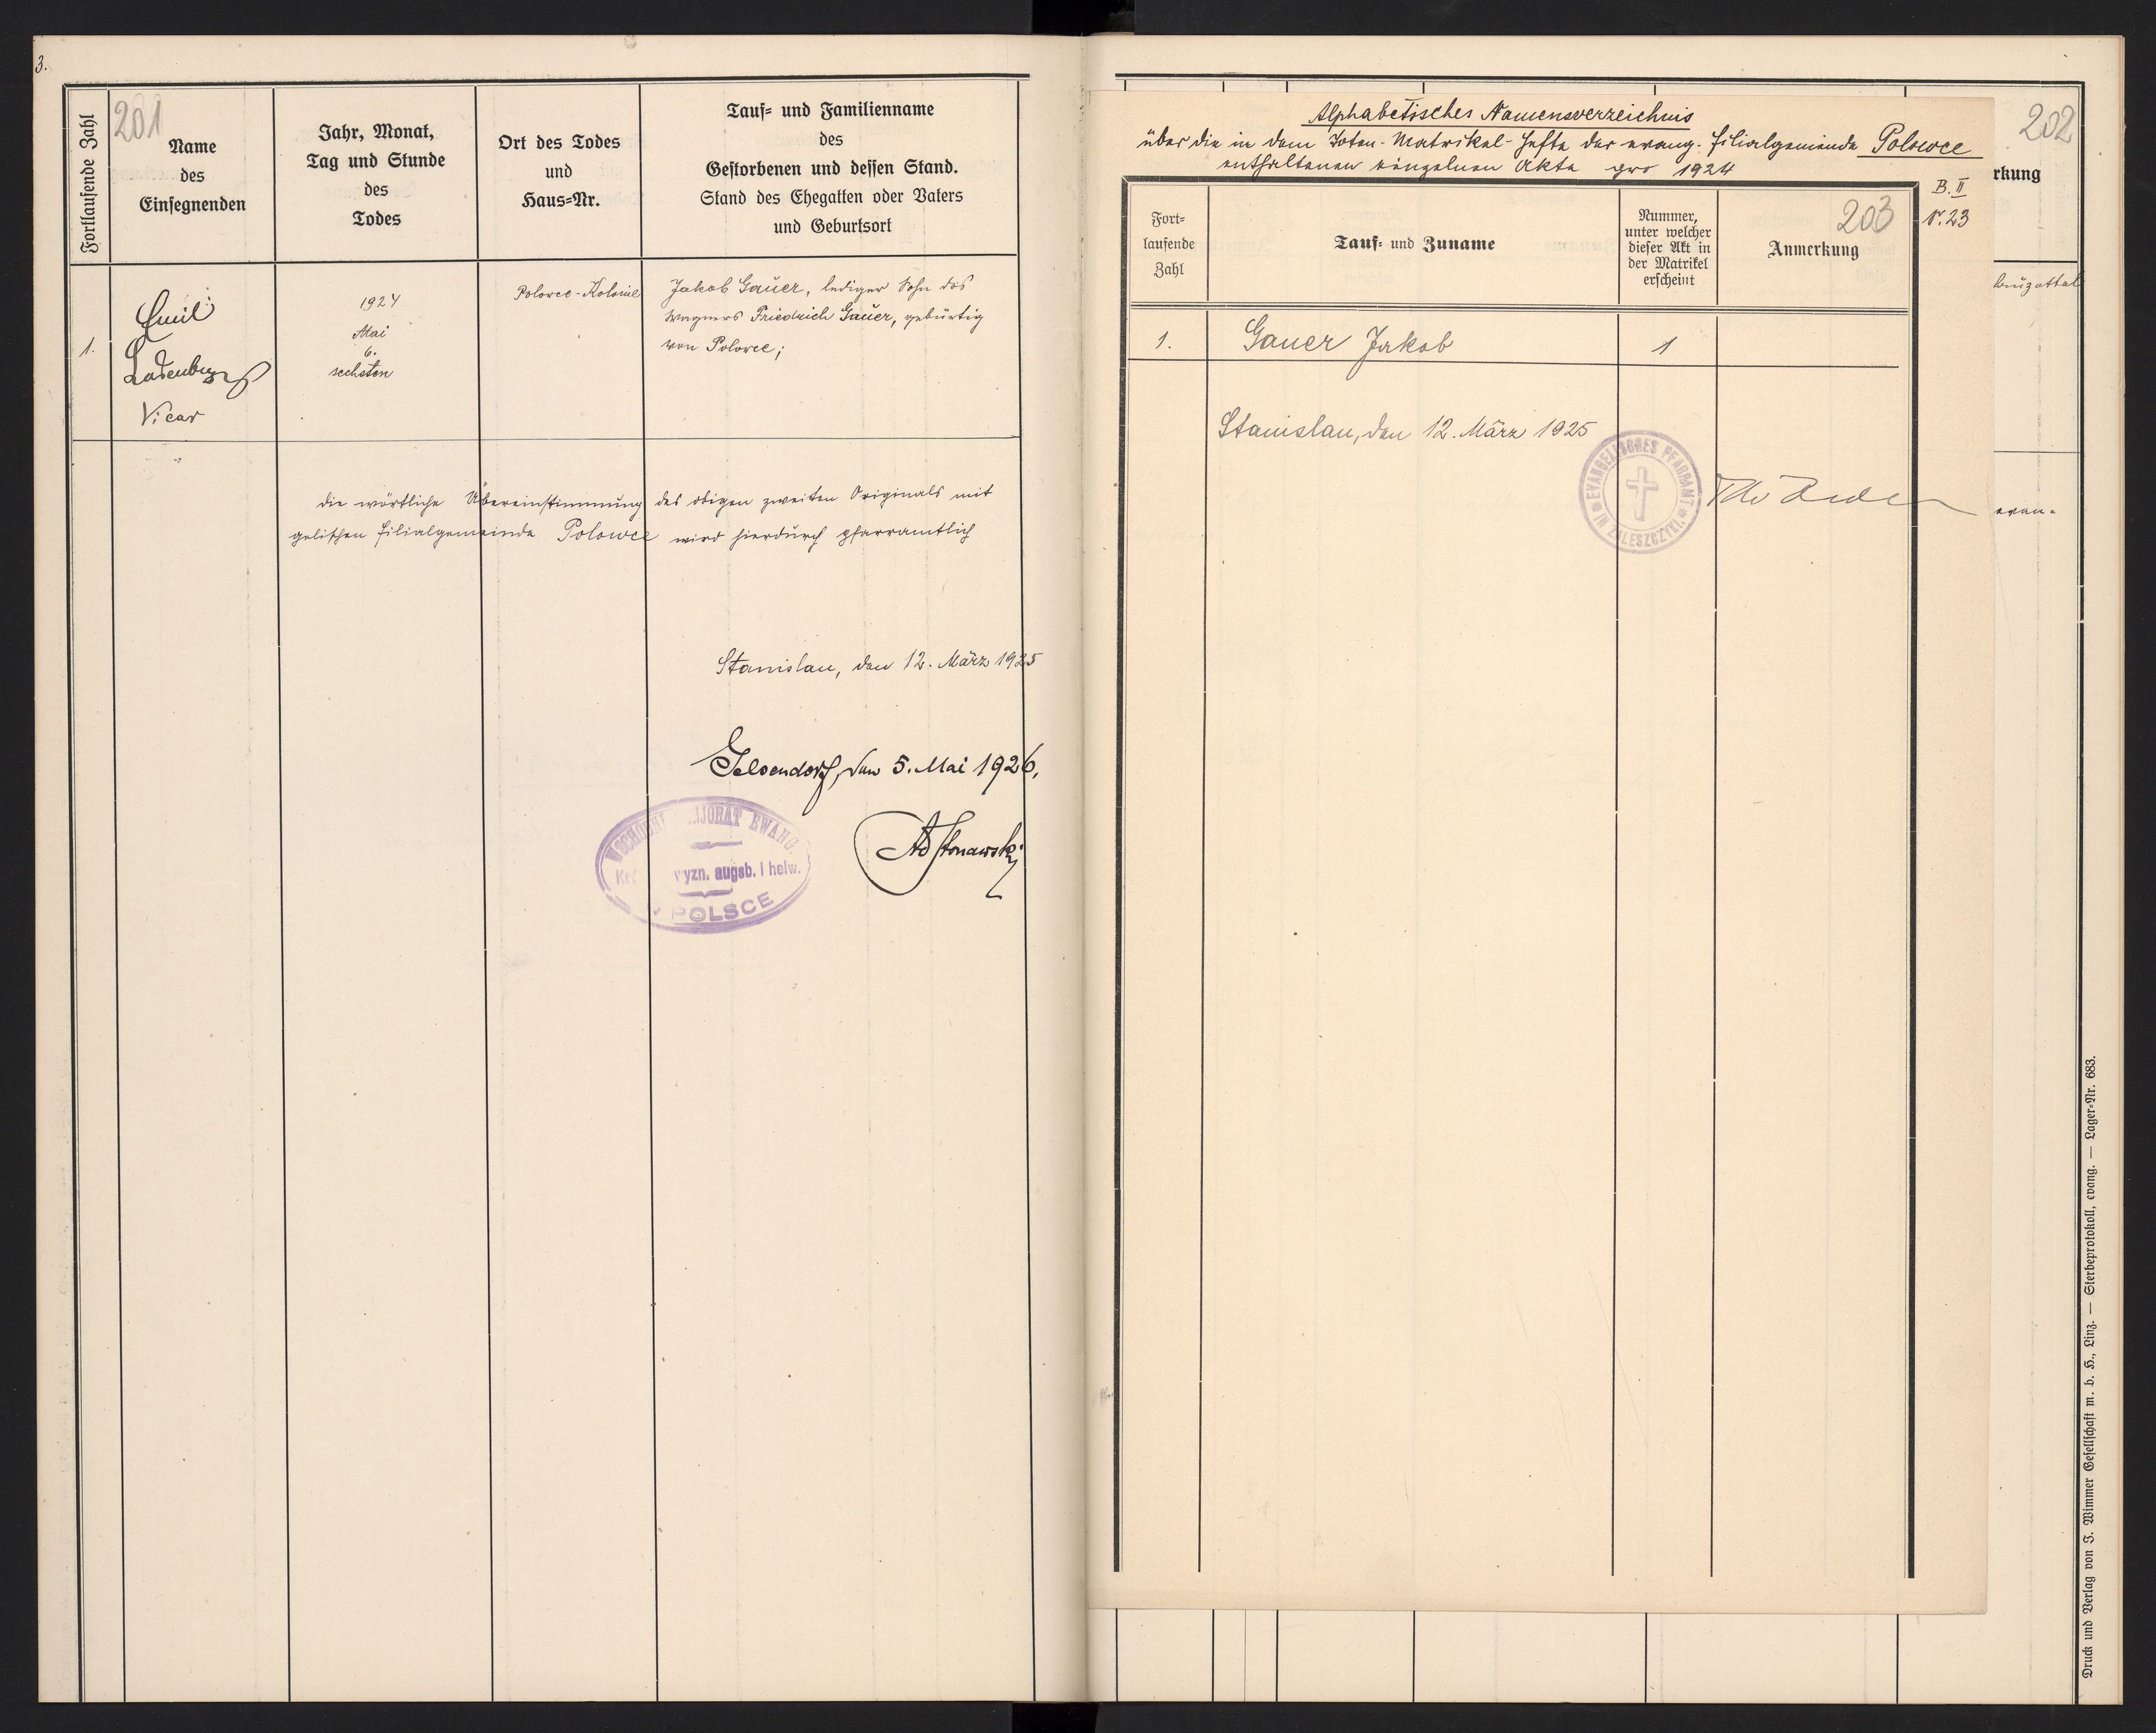 3.
201
Fortlaufende Zahl
Name
des
Einsegnenden
Jahr, Monat,
Tag und Stunde
des
Todes
Ort des Todes
und
Haus-Nr.
Tauf- und Familienname
des
Gestorbenen und dessen Stand.
Stand des Ehegatten oder Vaters
und Geburtsort
1.
Emil
Ladenberger
Vicar
1924
Mai
6.
sechsten
Polowce-Kolonie
Jakob Gauer, lediger Sohn des
Wagners Friedrich Gauer, gebürtig
von Polowce;
die wörtliche Übereinstimmung des obigen zweiten Originals mit
gelischen Filialgemeinde Polowce wird hierdurch pfarramtlich
Stanislau, den 12. März 1925
Gelsendorf, den 5. Mai 1926.
WSCHODNI JORAT EWANG.
wyzn. augsb. i helw.
POLSCE
202
rkung
evan-
Alphabetisches Namensverzeichnis
über die in dem Toten-Matrikel-Hefte der evang. Filialgemeinde Polowce
enthaltenen einzelnen Akte pro 1924
B. II
Nr. 23
203
Fort-
laufende
Zahl
Tauf- und Zuname
Nummer,
unter welcher
dieser Akt in
der Matrikel
erscheint
Anmerkung
1. Gauer Jakob 1
Stanislau, den 12. März 1925
EVANGELISCHES PFARRAMT
IN ZALESZCZYKI
Druck und Verlag von J. Wimmer Gesellschaft m. b. H., Linz. — Sterbeprotokoll, evang. — Lager-Nr. 683.